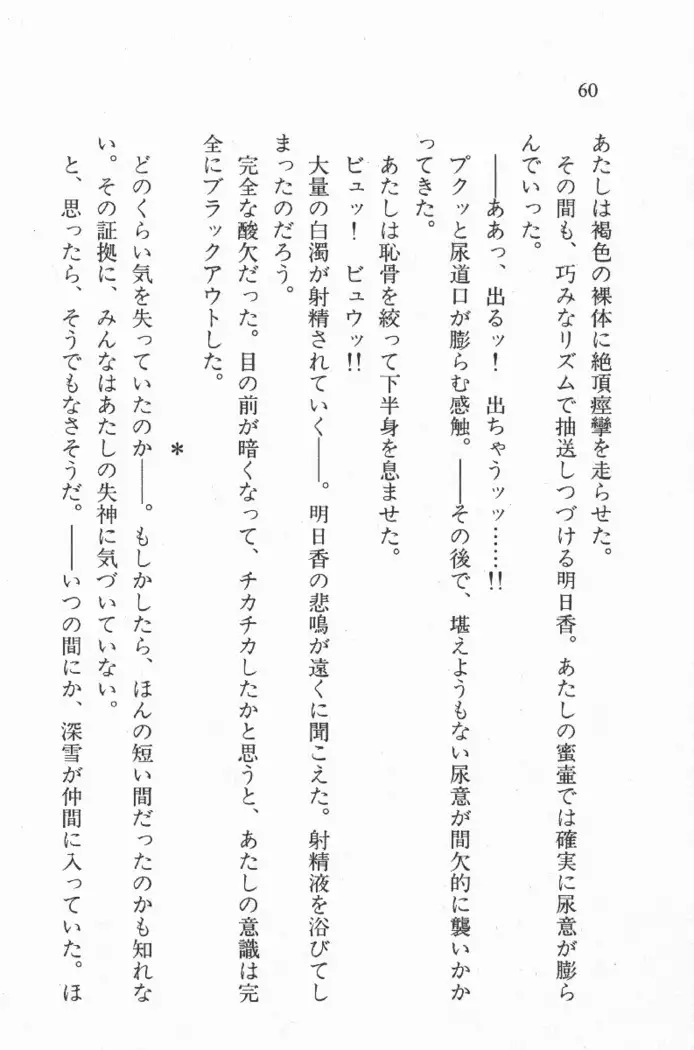 60
あたしは褐色の裸体に絶頂痙攣を走らせた。
その間も、巧みなリズムで抽送しつづける明日香。あたしの蜜壷では確実に尿意が膨ら
んでいった。
――ああっ、出るッ！　出ちゃうッッ……!!
プクッと尿道口が膨らむ感触。――その後で、堪えようもない尿意が間欠的に襲いかか
ってきた。
あたしは恥骨を絞って下半身を息ませた。
ビュッ！　ビュウッ!!
大量の白濁が射精されていく――。明日香の悲鳴が遠くに聞こえた。射精液を浴びてし
まったのだろう。
完全な酸欠だった。目の前が暗くなって、チカチカしたかと思うと、あたしの意識は完
全にブラックアウトした。
*
どのくらい気を失っていたのか――。もしかしたら、ほんの短い間だったのかも知れな
い。その証拠に、みんなはあたしの失神に気づいていない。
と、思ったら、そうでもなさそうだ。――いつの間にか、深雪が仲間に入っていた。ほ